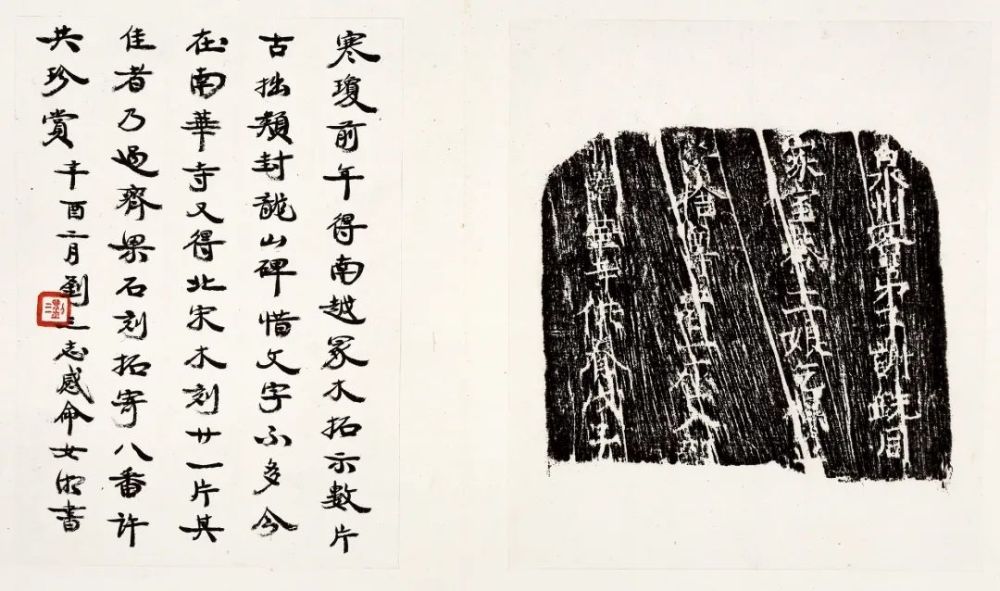 泉州客弟子謝
捨尊
華寺供養戊子
寒瓊前年得南越冢木拓示數片
古拙類封龍山碑惜文字不多今
在南華寺又得北宋木刻廿一片其
佳者乃過齊梁石刻拓寄八番許
共珍賞 辛酉二月劉三志感命女湘書